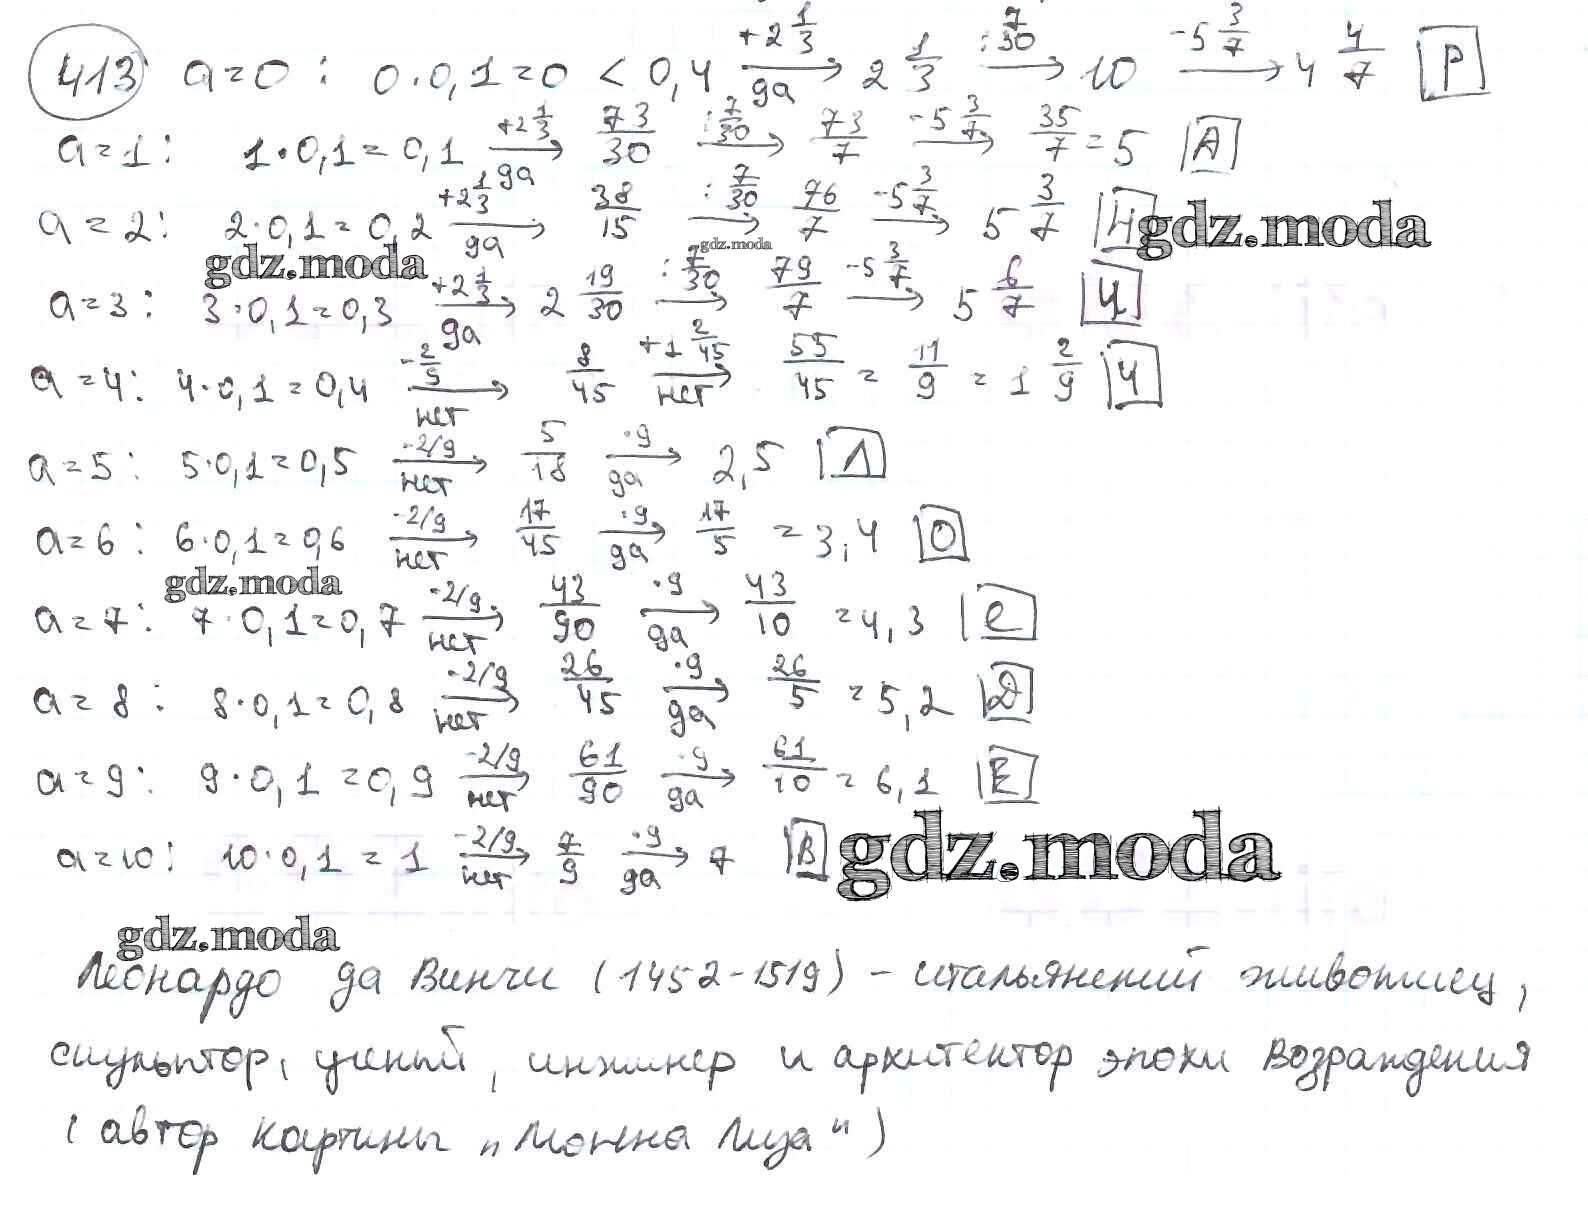 413 a=0: 0·0,1=0 < 0,4 +2 1/3 → да 2 1/3 :7/30 → 10 -5 3/7 → 4 4/7 Р
a=1: 1·0,1=0,1 +2 1/3 → да 73/30 :7/30 → 73/7 -5 3/7 → 35/7=5 А
a=2: 2·0,1=0,2 +2 1/3 → да 38/15 :7/30 → 76/7 -5 3/7 → 5 3/7 Н
gdz.moda
gdz.moda
gdz.moda
a=3: 3·0,1=0,3 +2 1/3 → да 2 19/30 :7/30 → 79/7 -5 3/7 → 5 6/7
a=4: 4·0,1=0,4 → нет 8/45 +1 2/45 → нет 55/45 = 11/9 = 1 2/9 Ч
a=5: 5·0,1=0,5 -2/9 → нет 5/18 ·9 → да 2,5 Л
a=6: 6·0,1=0,6 -2/9 → нет 17/45 ·9 → да 17/5 =3,4 О
gdz.moda
a=7: 7·0,1=0,7 -2/9 → нет 43/90 ·9 → да 43/10 =4,3
a=8: 8·0,1=0,8 -2/9 → нет 26/45 ·9 → да 26/5 =5,2 Д
a=9: 9·0,1=0,9 -2/9 → нет 61/90 ·9 → да 61/10 = 6,1 Е
a=10: 10·0,1=1 -2/9 → нет 7/9 ·9 → да 7 В
gdz.moda
gdz.moda
Леонардо да Винчи (1452-1519) - итальянский живописец,
скульптор, ученый, инжинер и архитектор эпохи Возраждения
(автор картины „Монна Лиза")